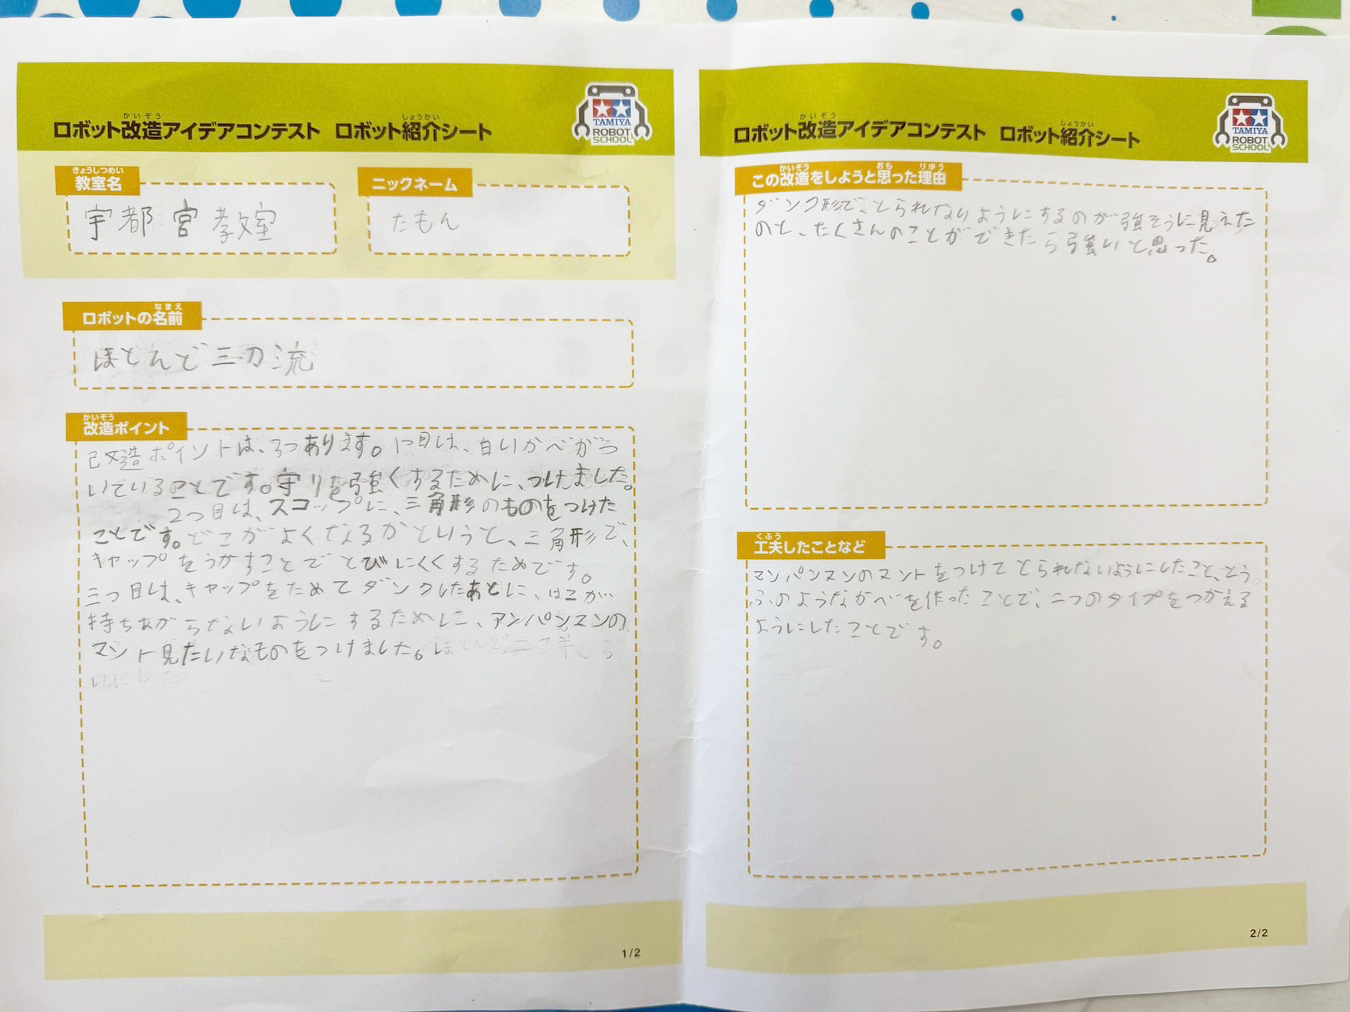 ロボット改造アイデアコンテスト ロボット紹介シート
かいぞう
しょうかい
TAMIYA
ROBOT
SCHOOL
きょうしつめい
教室名
宇都宮教室
ニックネーム
たもん
なまえ
ロボットの名前
ほとんど三刀流
かいぞう
改造ポイント
改造ポイントは、3つあります。1つ目は、白いかべがつ
いていることです。守りを強くするために、つけました。
2つ目は、スコップに、三角形のものをつけた
ことです。どこがよくなるかというと、三角形で、
キャップをうかすことでとびにくくするためです。
三つ目は、キャップをためてダンクしたあとに、はこが
持ちあがらないようにするために、アンパンマンの
マント見たいなものをつけました。
1/2
ロボット改造アイデアコンテスト ロボット紹介シート
かいぞう
しょうかい
TAMIYA
ROBOT
SCHOOL
かいぞう おも りゆう
この改造をしようと思った理由
ダンク形で、とられないようにするのが強そうに見えた
のと、たくさんのことができたら強いと思った。
くふう
工夫したことなど
マンパンマンのマントをつけてとられないようにしたこと、とう
ふのようなかべを作ったことで、二つのタイプをつかえる
ようにしたことです。
2/2